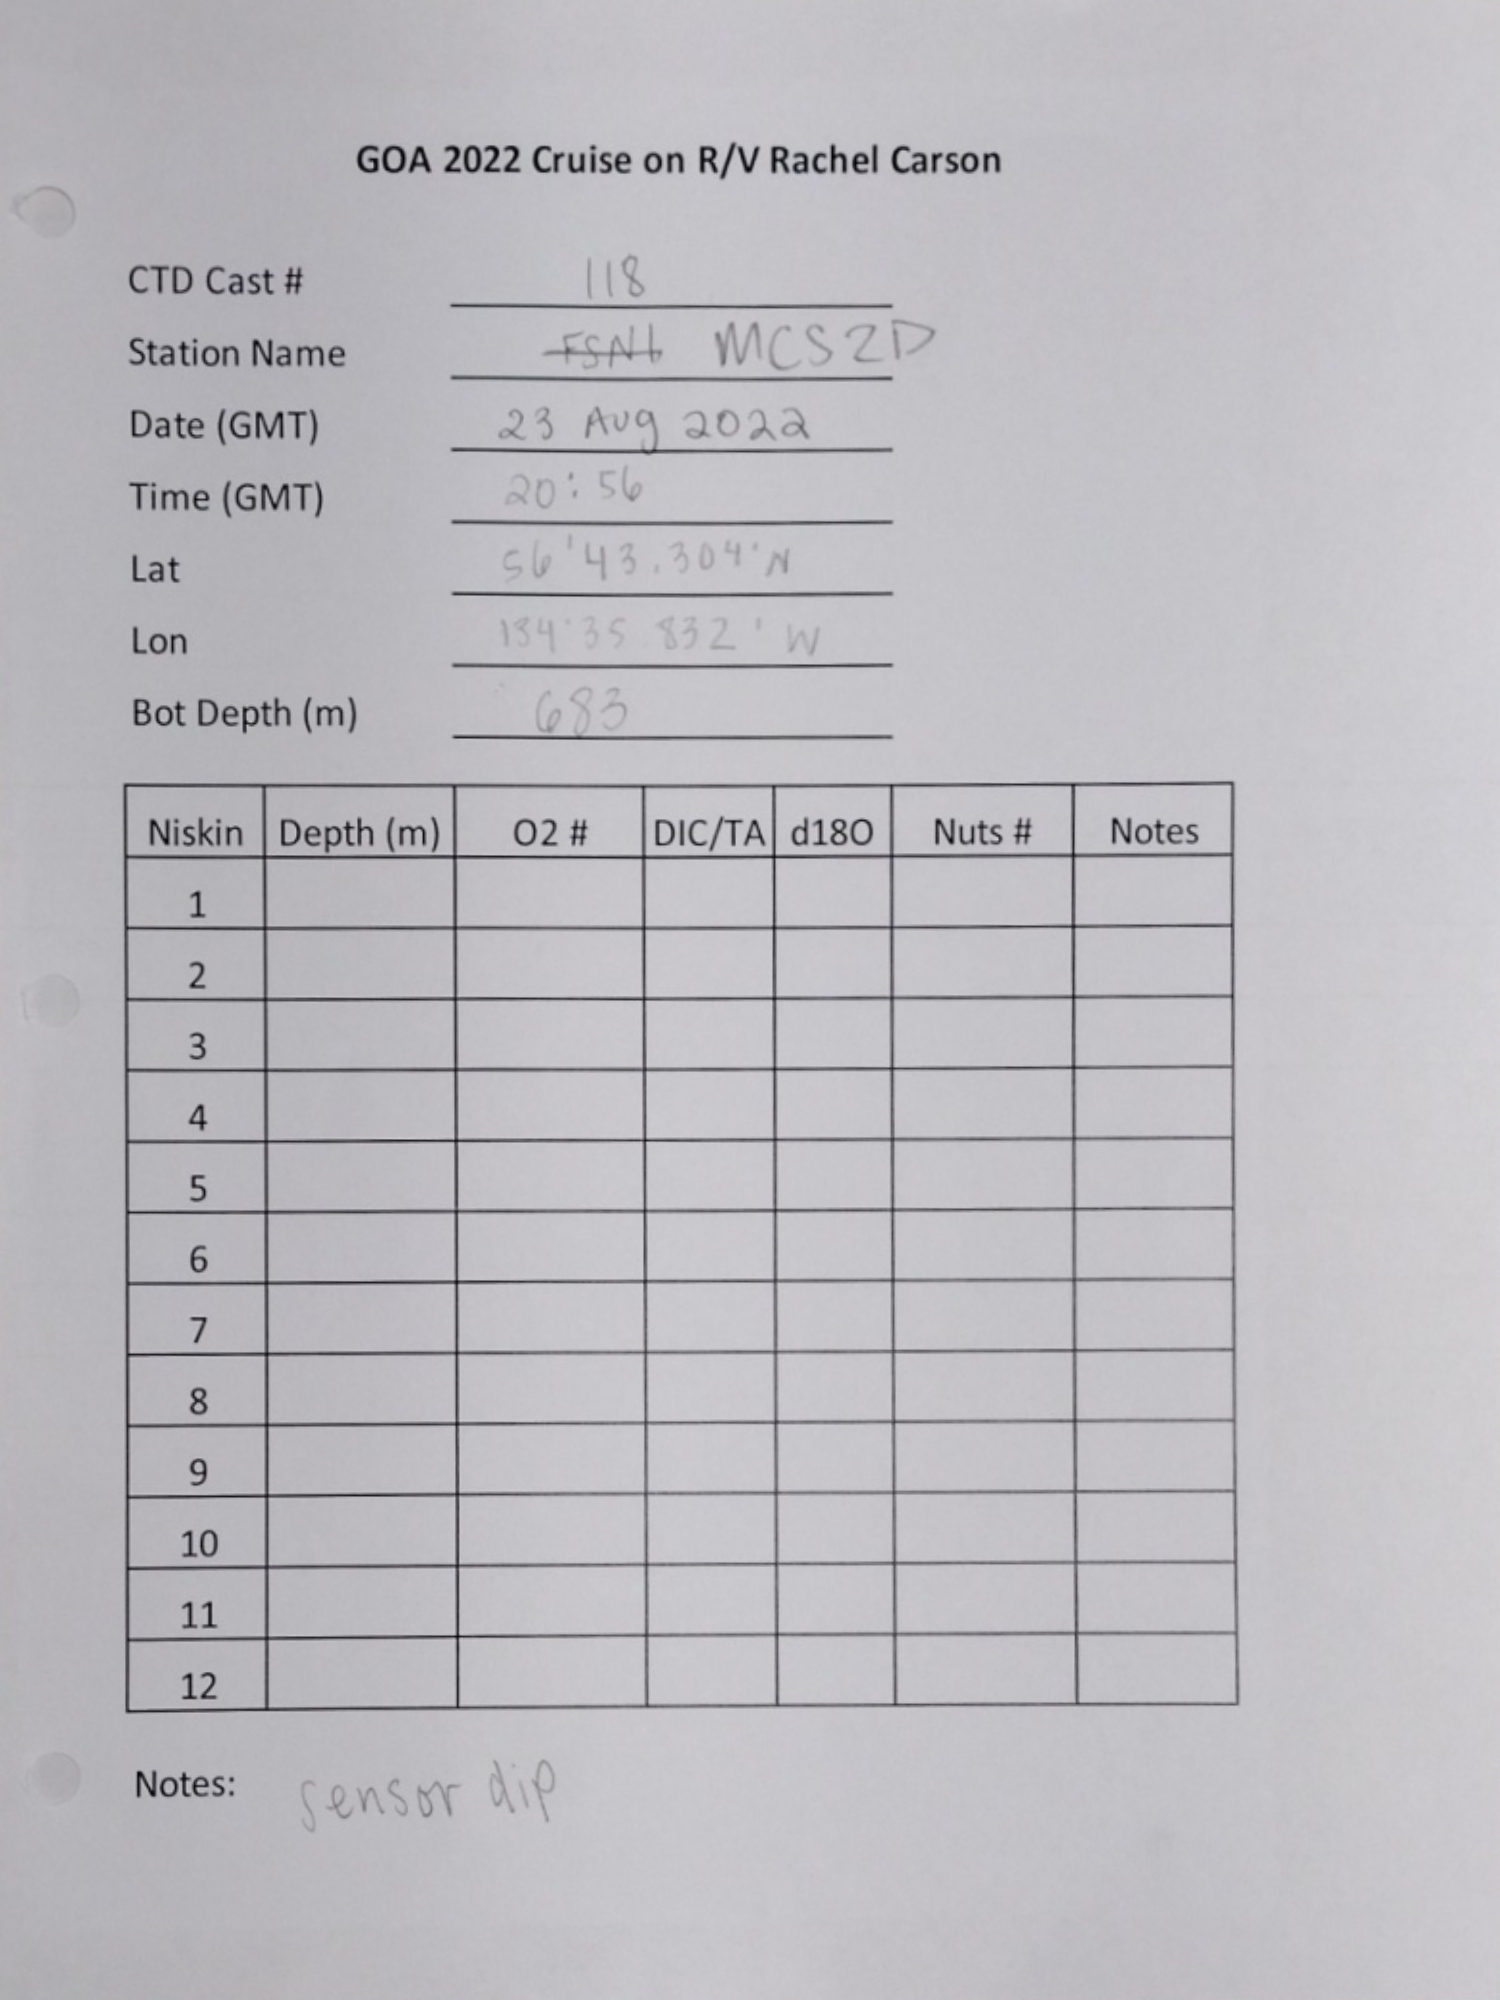 GOA 2022 Cruise on R/V Rachel Carson
CTD Cast # 118
Station Name FSN6 MCS2D
Date (GMT) 23 Aug 2022
Time (GMT) 20:56
Lat 56'43.304'N
Lon 134°35.832'W
Bot Depth (m) 683
Niskin Depth (m) O2 # DIC/TA d18O Nuts # Notes
1
2
3
4
5
6
7
8
9
10
11
12
Notes: sensor dip